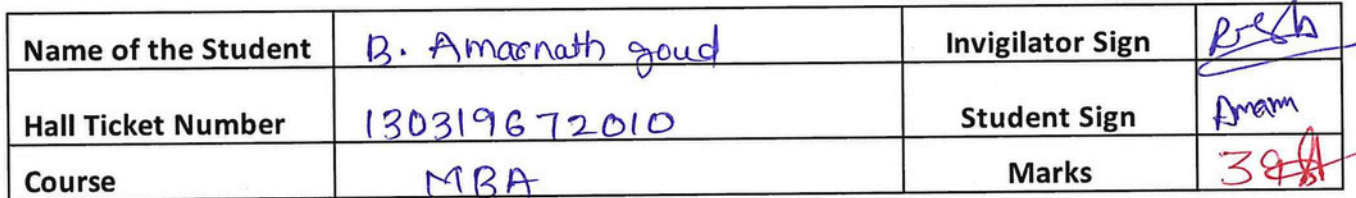 Name of the Student B. Amarnath goud Invigilator Sign
Hall Ticket Number 130319672010 Student Sign Amarn
Course MBA Marks